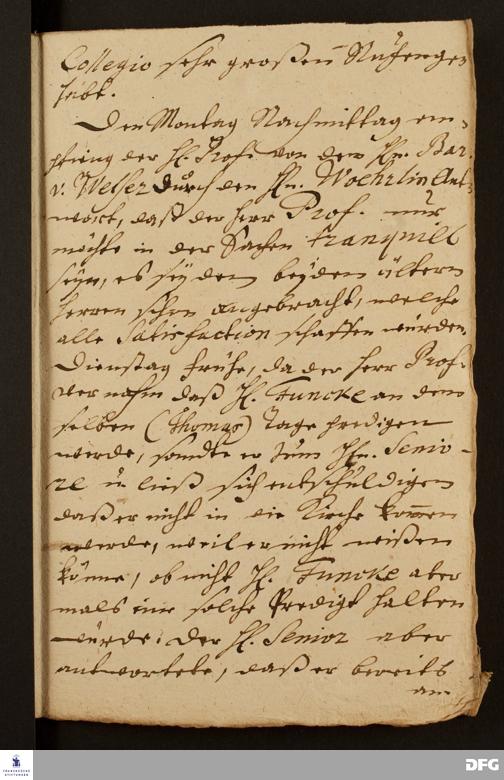 Collegio sehr großen Ruhm gehabt.
Den Montag Nachmittag em-
pfieng der H. Prof. von dem Hn. Bar.
v. Welser durch den Hn. Woehrlin Ant-
wort, daß der Herr Prof. nur
möchte in der Sachen tranquill
seyn, es sey dem beyden ältern
Herren schon angebracht, welche
alle Satisfaction schaffen würden.
Dienstag frühe, da der Herr Prof.
vernahm daß H. Funcke an dem
selben (Thomas) Tage predigen
werde, sandte er zum Hn. Senio-
re u. ließ sich entschuldigen
daß er nicht in die Kirche kommen
werde, weil er nicht wißen
könne, ob nicht H. Funcke aber
mals eine solche Predigt halten
würde. Der H. Senior aber
antwortete, daß er bereits
am
FRANCKESCHE STIFTUNGEN
DFG